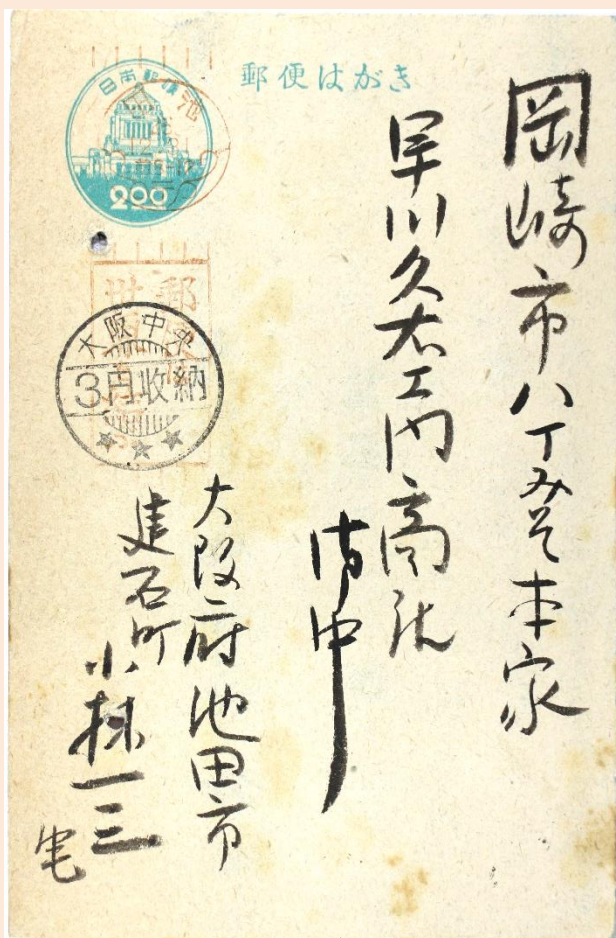 郵便はがき
日本郵便
200
池
大阪中央
3円収納
岡崎市八丁みそ本家
早川久右エ門商店
御中
大阪府池田市
建石町
小林一三
宅